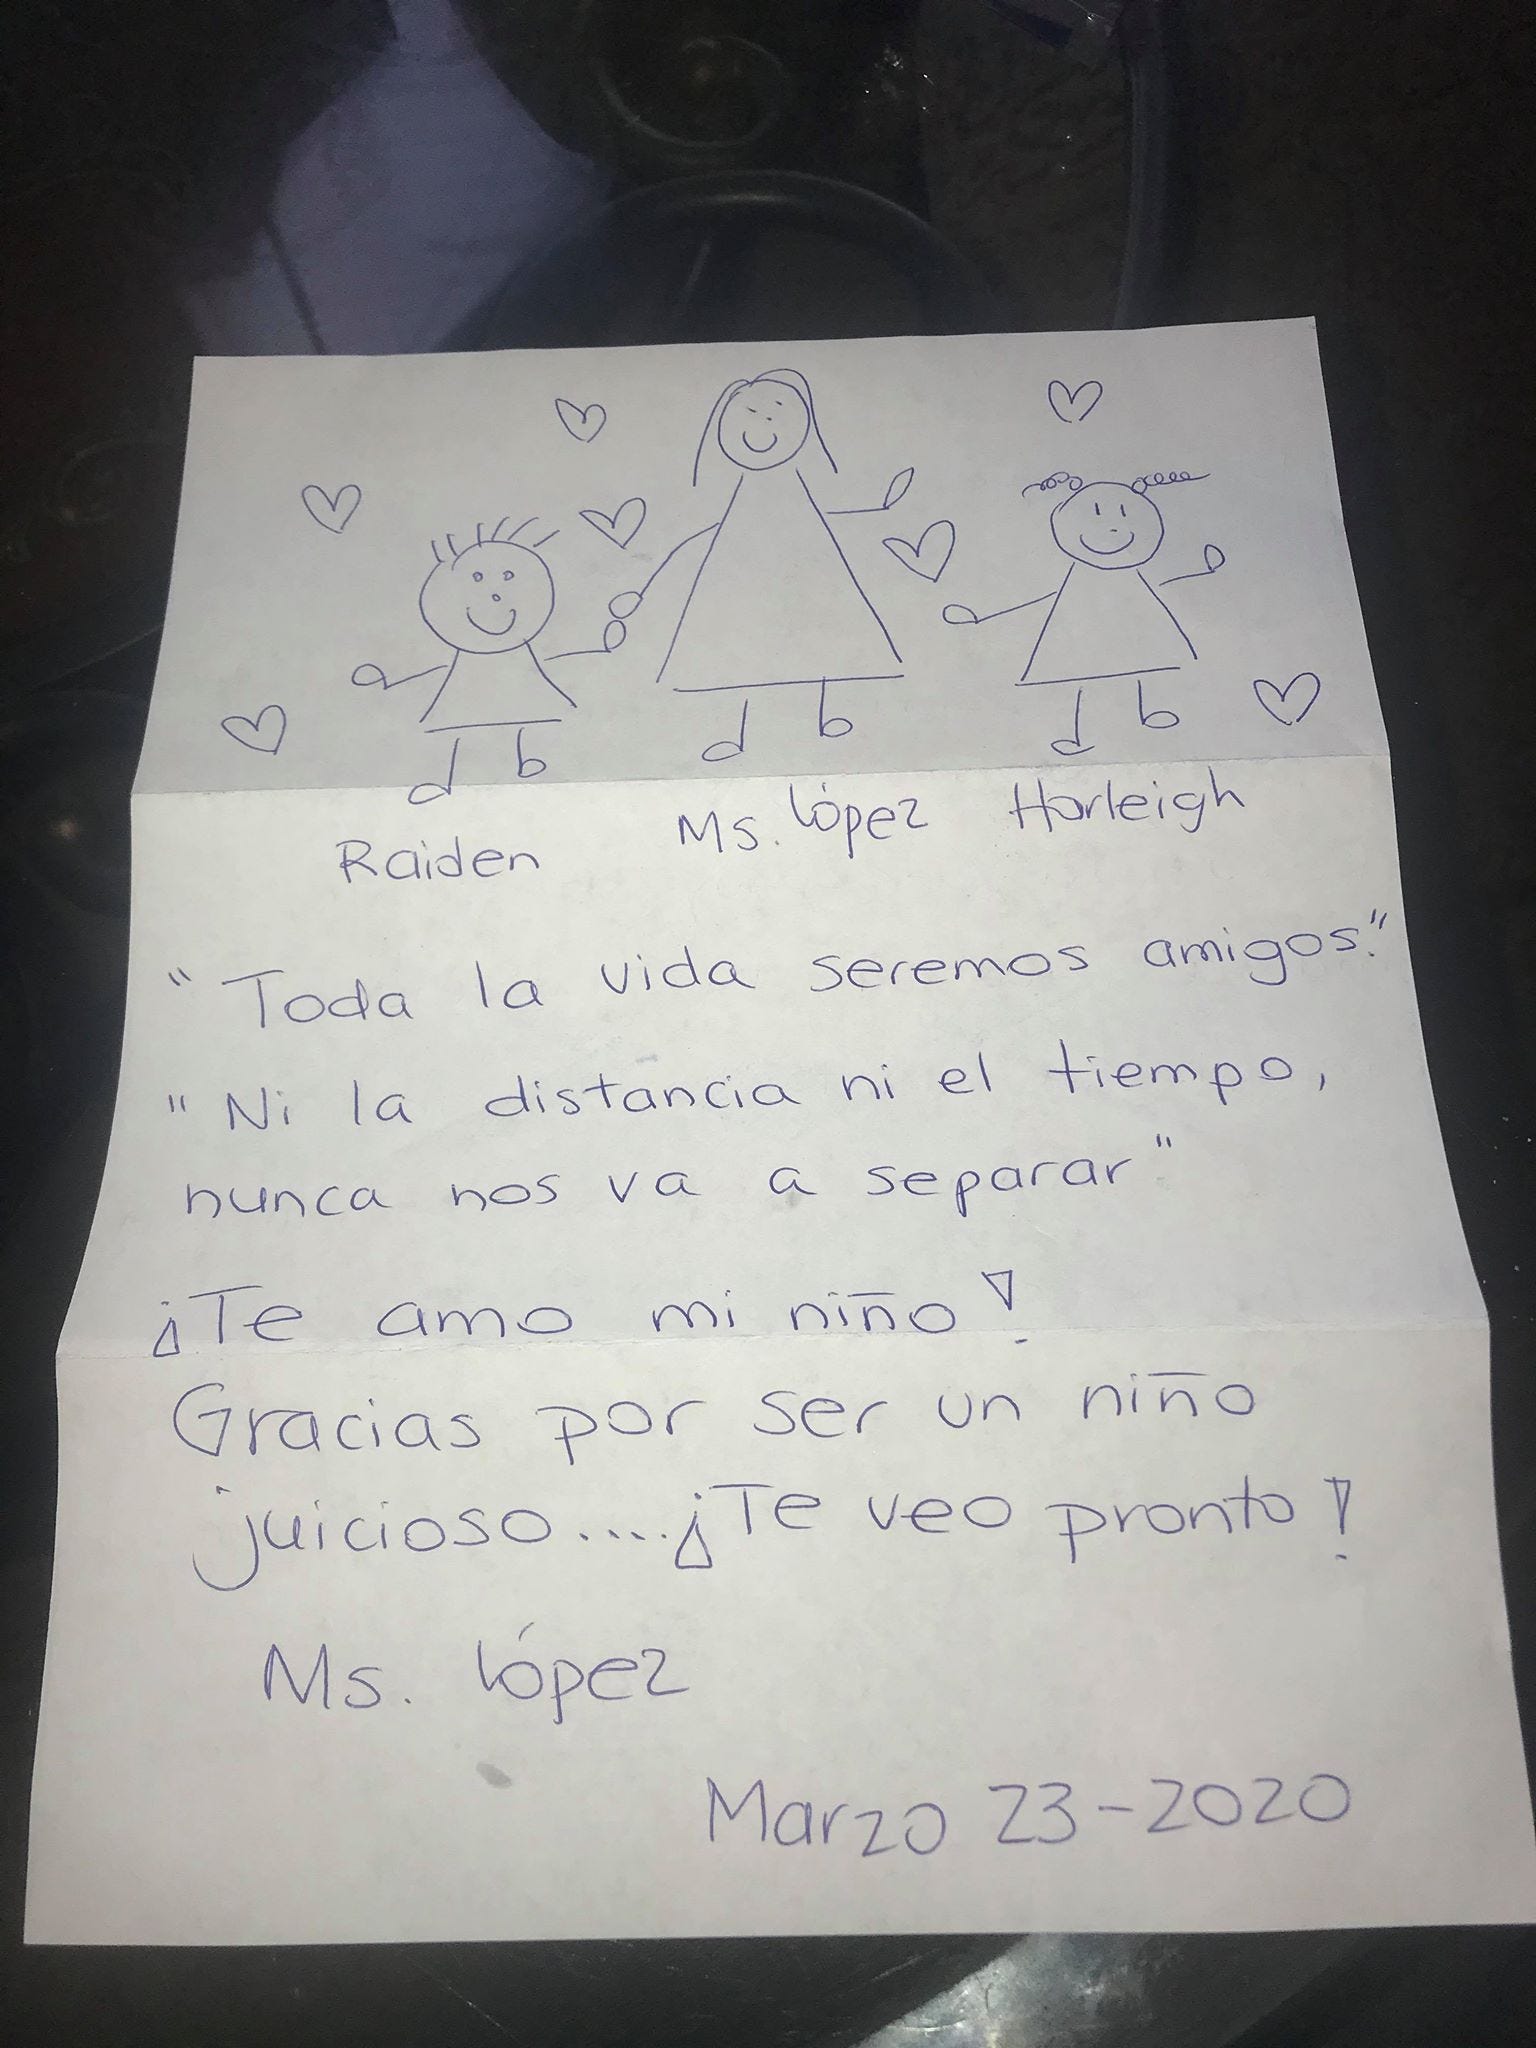 Raiden Ms. López Harleigh
"Toda la vida seremos amigos."
"Ni la distancia ni el tiempo,
nunca nos va a separar"
¡Te amo mi niño!
Gracias por ser un niño
juicioso....¡Te veo pronto!
Ms. López
Marzo 23-2020